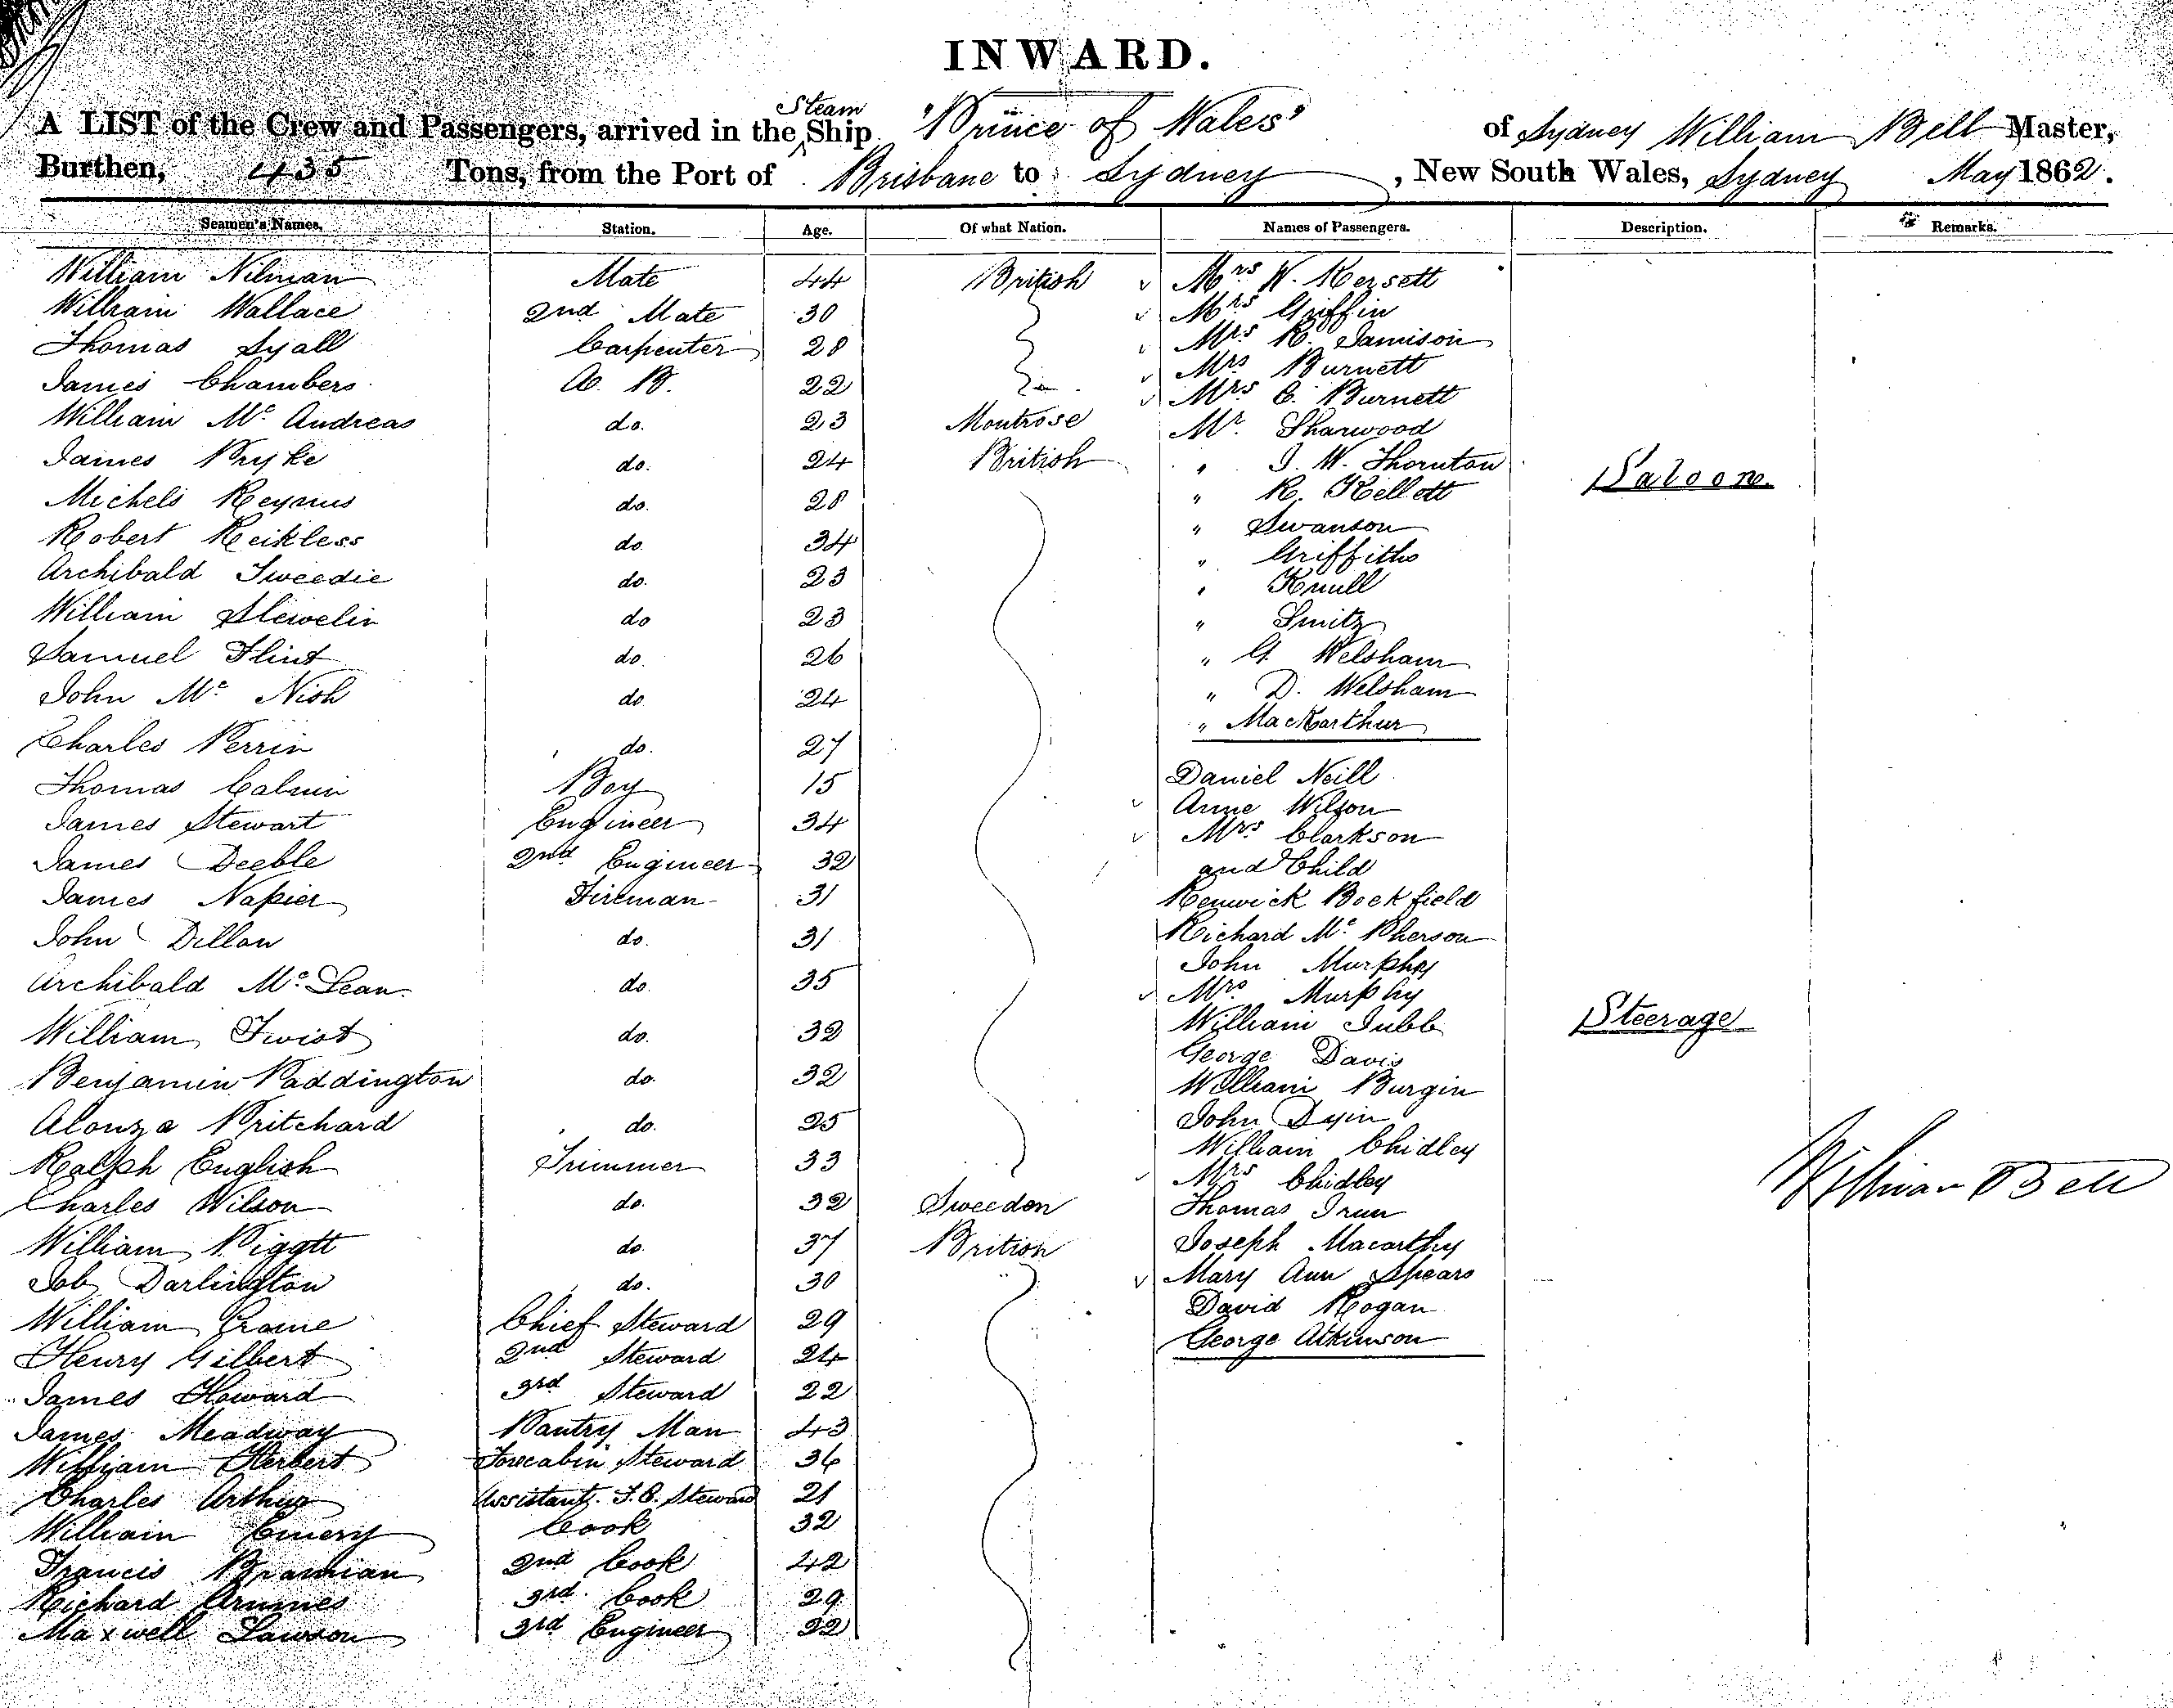 INWARD.
A LIST of the Crew and Passengers, arrived in the Steam Ship "Prince of Wales" of Sydney William Bell Master,
Burthen, 435 Tons, from the Port of Brisbane to Sydney, New South Wales, Sydney May 1862.
Seamen's Names. Station. Age. Of what Nation. Names of Passengers. Description. Remarks.
William Nilman Mate 44 British Mrs W. Kersett
William Wallace 2nd Mate 30 Mrs Griffin
Thomas Lyall Carpenter 28 Mrs R. Jamison
James Chambers A. B. 22 Mrs Burnett
Mrs C. Burnett
William Mc Andreas do. 23 Montrose Mr. Sharwood
James Pryke do. 24 British " J. W. Thornton
Saloon.
Michels Reyrius do. 28 " R. Kellett
Robert Reikless do. 34 " Swanson
" Griffiths
Archibald Tweedie do. 23 " Knull
William Llewelin do 23 " Smitz
Samuel Flint do. 26 " G. Welsham
John Mc Nish do 24 " D. Welsham
" MacKarthur
Charles Perrin do. 27
Thomas Calvin Boy 15 Daniel Neill
Anne Wilson
James Stewart Engineer 34 Mrs Clarkson
James Deeble 2nd Engineer 32 and Child
James Napier Fireman 31 Renwick Bockfield
John Dillon do. 31 Richard Mc Pherson
John Murphy
Archibald Mc Lean do. 35 Mrs Murphy
William Twist do. 32 William Jubb
Steerage
George Davis
Benjamin Paddington do. 32 William Burgin
Alonza Pritchard do. 25 John
William Chidley
Ralph English Trimmer 33 Mrs Chidley
William Bell
Charles Wilson do. 32 Sweeden Thomas
William Piggtt do. 37 British Joseph Macarthy
Job Darlington do. 30 Mary Ann Spears
David Rogan
William Graine Chief Steward 29
George Atkinson
Henry Gilbert 2nd Steward 24
James Howard 3rd Steward 22
James Meadway Pantry Man 43
William Herbert Forecabin Steward 36
Charles Arthur Assistant F. C. Steward 21
William Emery Cook 32
Francis 2nd Cook 42
Richard 3rd Cook 29
Maxwell Lawson 3rd Engineer 22